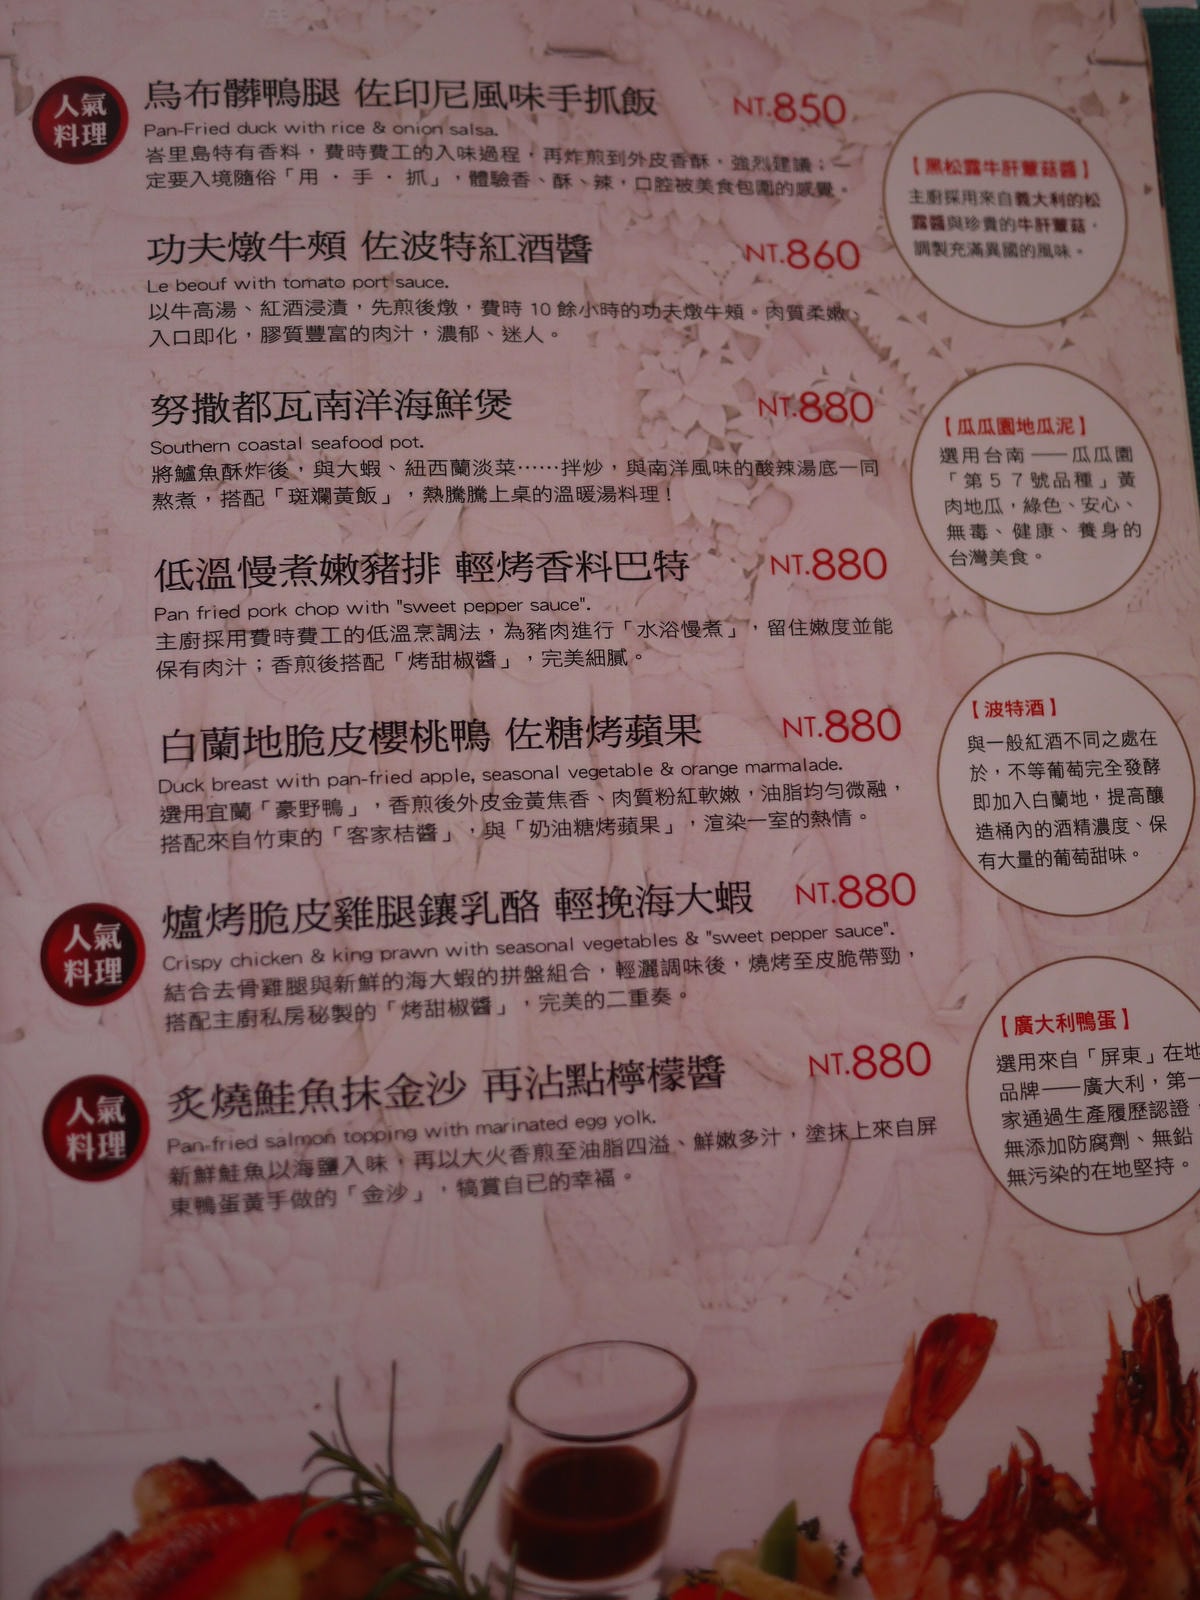 人氣
料理
烏布髒鴨腿 佐印尼風味手抓飯 NT.850
Pan-Fried duck with rice & onion salsa.
峇里島特有香料，費時費工的入味過程，再炸煎到外皮香酥，強烈建議；一
定要入境隨俗「用・手・抓」，體驗香、酥、辣，口腔被美食包圍的感覺。
功夫燉牛頰 佐波特紅酒醬 NT.860
Le beouf with tomato port sauce.
以牛高湯、紅酒浸漬，先煎後燉，費時 10 餘小時的功夫燉牛頰。肉質柔嫩、
入口即化，膠質豐富的肉汁，濃郁、迷人。
努撒都瓦南洋海鮮煲 NT.880
Southern coastal seafood pot.
將鱸魚酥炸後，與大蝦、紐西蘭淡菜……拌炒，與南洋風味的酸辣湯底一同
熬煮，搭配「斑斕黃飯」，熱騰騰上桌的溫暖湯料理！
低溫慢煮嫩豬排 輕烤香料巴特 NT.880
Pan fried pork chop with "sweet pepper sauce".
主廚採用費時費工的低溫烹調法，為豬肉進行「水浴慢煮」，留住嫩度並能
保有肉汁；香煎後搭配「烤甜椒醬」，完美細膩。
白蘭地脆皮櫻桃鴨 佐糖烤蘋果 NT.880
Duck breast with pan-fried apple, seasonal vegetable & orange marmalade.
選用宜蘭「豪野鴨」，香煎後外皮金黃焦香、肉質粉紅軟嫩，油脂均勻微融，
搭配來自竹東的「客家桔醬」，與「奶油糖烤蘋果」，渲染一室的熱情。
人氣
料理
爐烤脆皮雞腿鑲乳酪 輕挽海大蝦 NT.880
Crispy chicken & king prawn with seasonal vegetables & "sweet pepper sauce".
結合去骨雞腿與新鮮的海大蝦的拼盤組合，輕灑調味後，燒烤至皮脆帶勁，
搭配主廚私房秘製的「烤甜椒醬」，完美的二重奏。
人氣
料理
炙燒鮭魚抹金沙 再沾點檸檬醬 NT.880
Pan-fried salmon topping with marinated egg yolk.
新鮮鮭魚以海鹽入味，再以大火香煎至油脂四溢、鮮嫩多汁，塗抹上來自屏
東鴨蛋黃手做的「金沙」，犒賞自己的幸福。
【黑松露牛肝蕈菇醬】
主廚採用來自義大利的松
露醬與珍貴的牛肝蕈菇，
調製充滿異國的風味。
【瓜瓜園地瓜泥】
選用台南——瓜瓜園
「第５７號品種」黃
肉地瓜，綠色、安心、
無毒、健康、養身的
台灣美食。
【波特酒】
與一般紅酒不同之處在
於，不等葡萄完全發酵
即加入白蘭地，提高釀
造桶內的酒精濃度、保
有大量的葡萄甜味。
【廣大利鴨蛋】
選用來自「屏東」在地
品牌——廣大利，第一
家通過生產履歷認證，
無添加防腐劑、無鉛
無污染的在地堅持。